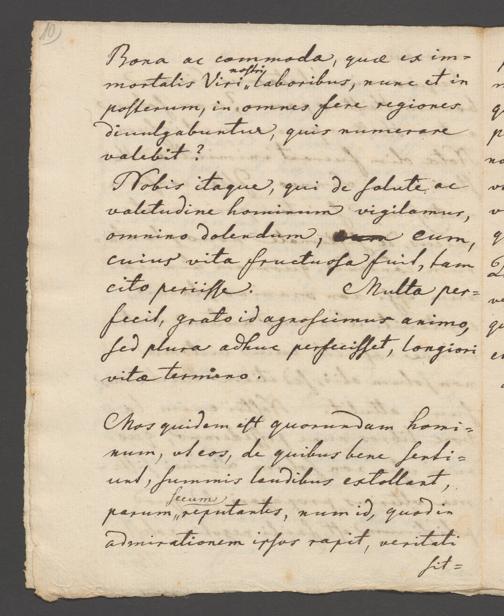 10)
Bona ac commoda, quæ ex im=
mortalis Viri nostri laboribus, nunc et in
posterum, in omnes fere regiones
divulgabuntur, quis numerare
valebit?
Nobis itaque, qui de salute ac
valetudine hominum vigilamus,
omnino dolendum, eum,
cuius vita fructuosa fuit, tam
cito periisse. Multa per=
fecit, grato id agnoscimus animo,
sed plura adhuc perfecisset, longiori
vitæ termino.
Mos quidem est quorundam homi=
num, ut eos, de quibus bene senti=
unt, summis laudibus extollant,
parum secum reputantes, num id, quod in
admirationem ipsos rapit, veritati
sit=